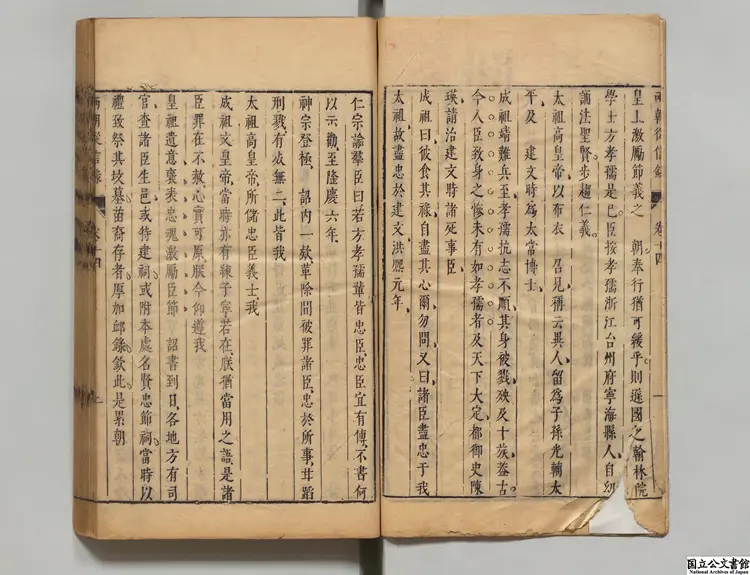 兩朝從信錄 卷十四 一
皇上激勵節義之 朝奉行猶可緩乎則遜國之翰林院
學士方孝孺是已臣按孝孺浙江台州府寧海縣人自幼
誦法聖賢步趨仁義
太祖高皇帝以布衣 召見稱云異人留爲子孫光輔太
平及 建文時爲太常博士
成祖靖難兵至孝孺抗志不順其身被戮殃及十族蓋古
今人臣致身之慘未有如孝孺者及天下大定都御史陳
瑛請治建文時諸死事臣
成祖曰彼食其祿自盡其心爾勿問又曰諸臣盡忠于我
太祖故盡忠於建文洪熙元年
仁宗諭羣臣曰若方孝孺輩皆忠臣忠臣宜有傳不書何
以示勸至隆慶六年
神宗登極 詔內一欵革除間被罪諸臣忠於所事甘蹈
刑戮有炳無二此皆我
太祖高皇帝所儲忠臣義士我
成祖文皇帝當時亦有練子寧若在朕猶當用之語是諸
臣罪在不赦心實可原朕今仰遵我
皇祖遺意褒表忠魂激勵臣節 詔書到日各地方有司
官查諸臣生邑或特建祠或附本處名賢忠節祠當時以
禮致祭其坟墓苗裔存者厚加邮錄欽此是累朝
兩朝從信錄 卷十四
国立公文書館
National Archives of Japan